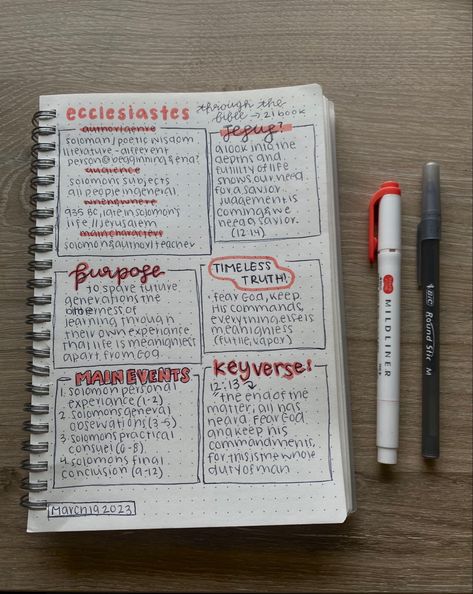 ecclesiastes
through the
bible → 21 book
author/genre
soloman/poetic wisdom
literature - different
person @ beggining & end?
audience
solomons subjects
all people in general
when & where
935 BC, late in solomon's
life // jerusalem
main characters
solomon & author/teacher
jesus?
a look into the
depths and
futility of life
shows our need
for a savior
judgement is
coming & we
need a savior.
(12:14)
purpose
to spare future
generations the
bitterness of
learning through
their own experience
that life is meaningless
apart from GOD.
TIMELESS
TRUTH!
• fear God, keep
His commands,
everything else is
meaningless
(futile, vapor)
MAIN EVENTS
1. solomon personal
experiance (1-2)
2. solomons general
observations (3-5)
3. solomons practical
consuel (6-8)
4. solomons final
conclusion (9-12)
key verse!
12:13
"the end of the
matter; all has
heard. Fear God
and keep his
commandments,
for this is the whole
duty of man
March 19, 2023
MILDLINER
BIC Round Stic M